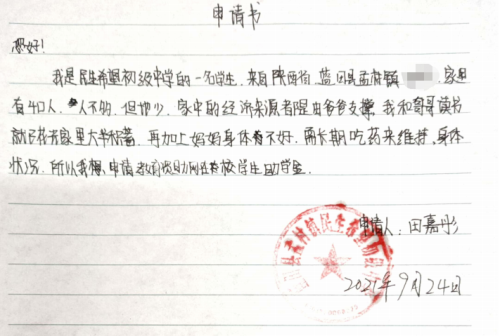 申请书
您好!
我是民生希望初级中学的一名学生,来自陕西省蓝田县孟村镇 家里
有4口人,人不多,但地少,家中的经济来源都是由爸爸支撑,我和哥哥读书
就已花去家里大半积蓄,再加上妈妈身体不好,需长期吃药来维持身体
状况,所以我想申请 学生助学金。
申请人:田嘉彤
2021年9月24日